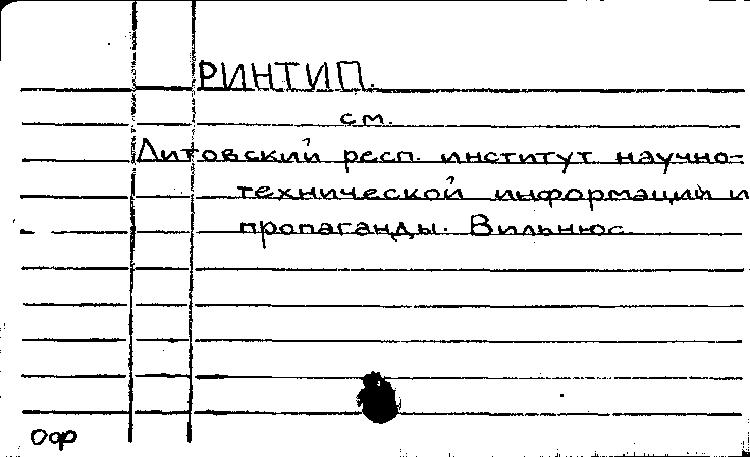 РИНТИП.
см.
Литовский респ. институт научно-
технической информации и
пропаганды. Вильнюс.
Оф